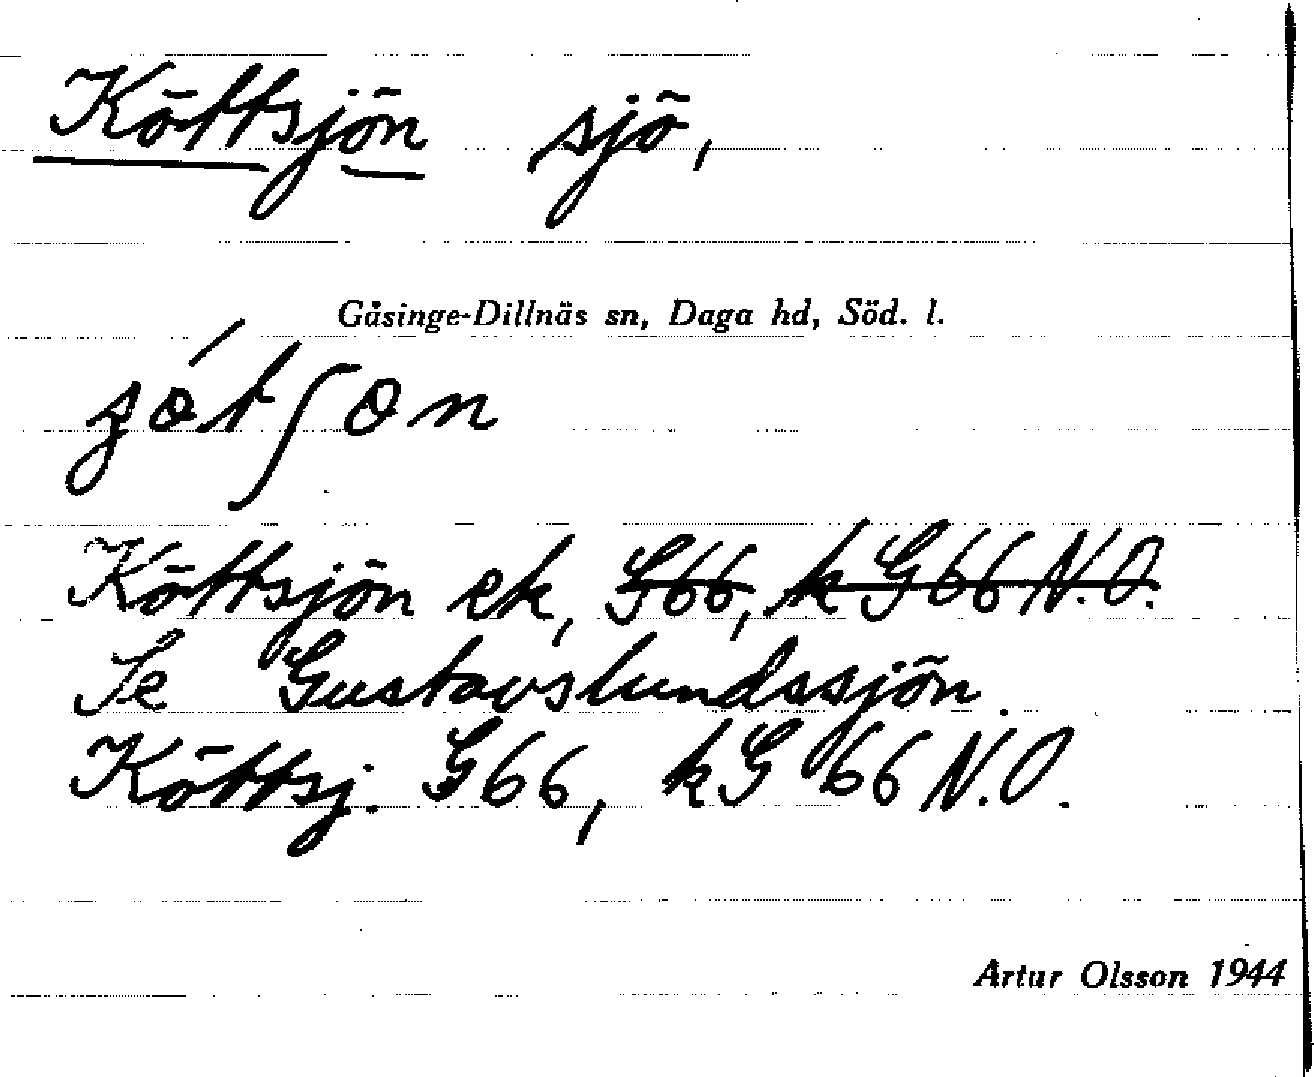 Köttsjön sjö,
Gåsinge-Dillnäs sn, Daga hd, Söd. l.
Köttsjön ek, G66, k G 66 N.O.
Se Gustavslundssjön.
Köttsj. G 66, k G 66 N.O.
Artur Olsson 1944